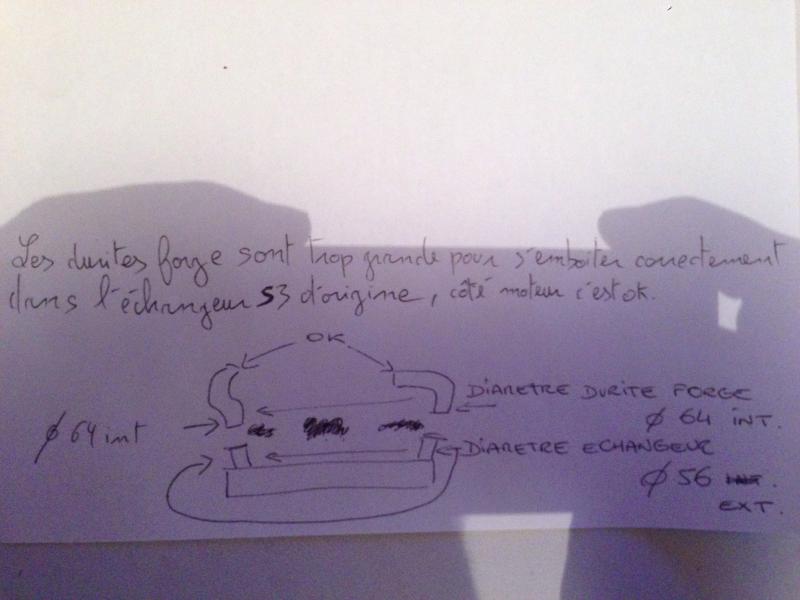 Les durites forge sont trop grande pour s'emboiter correctement
dans l'échangeur S3 d'origine, côté moteur c'est ok.
OK
DIAMETRE DURITE FORGE
Ø 64 INT.
Ø 64 int
DIAMETRE ECHANGEUR
Ø 56
EXT.